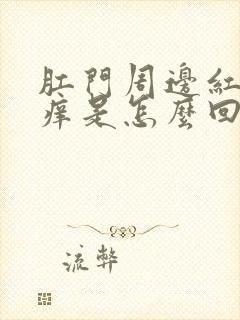 肛門周邊紅
痒是怎麼回
流弊